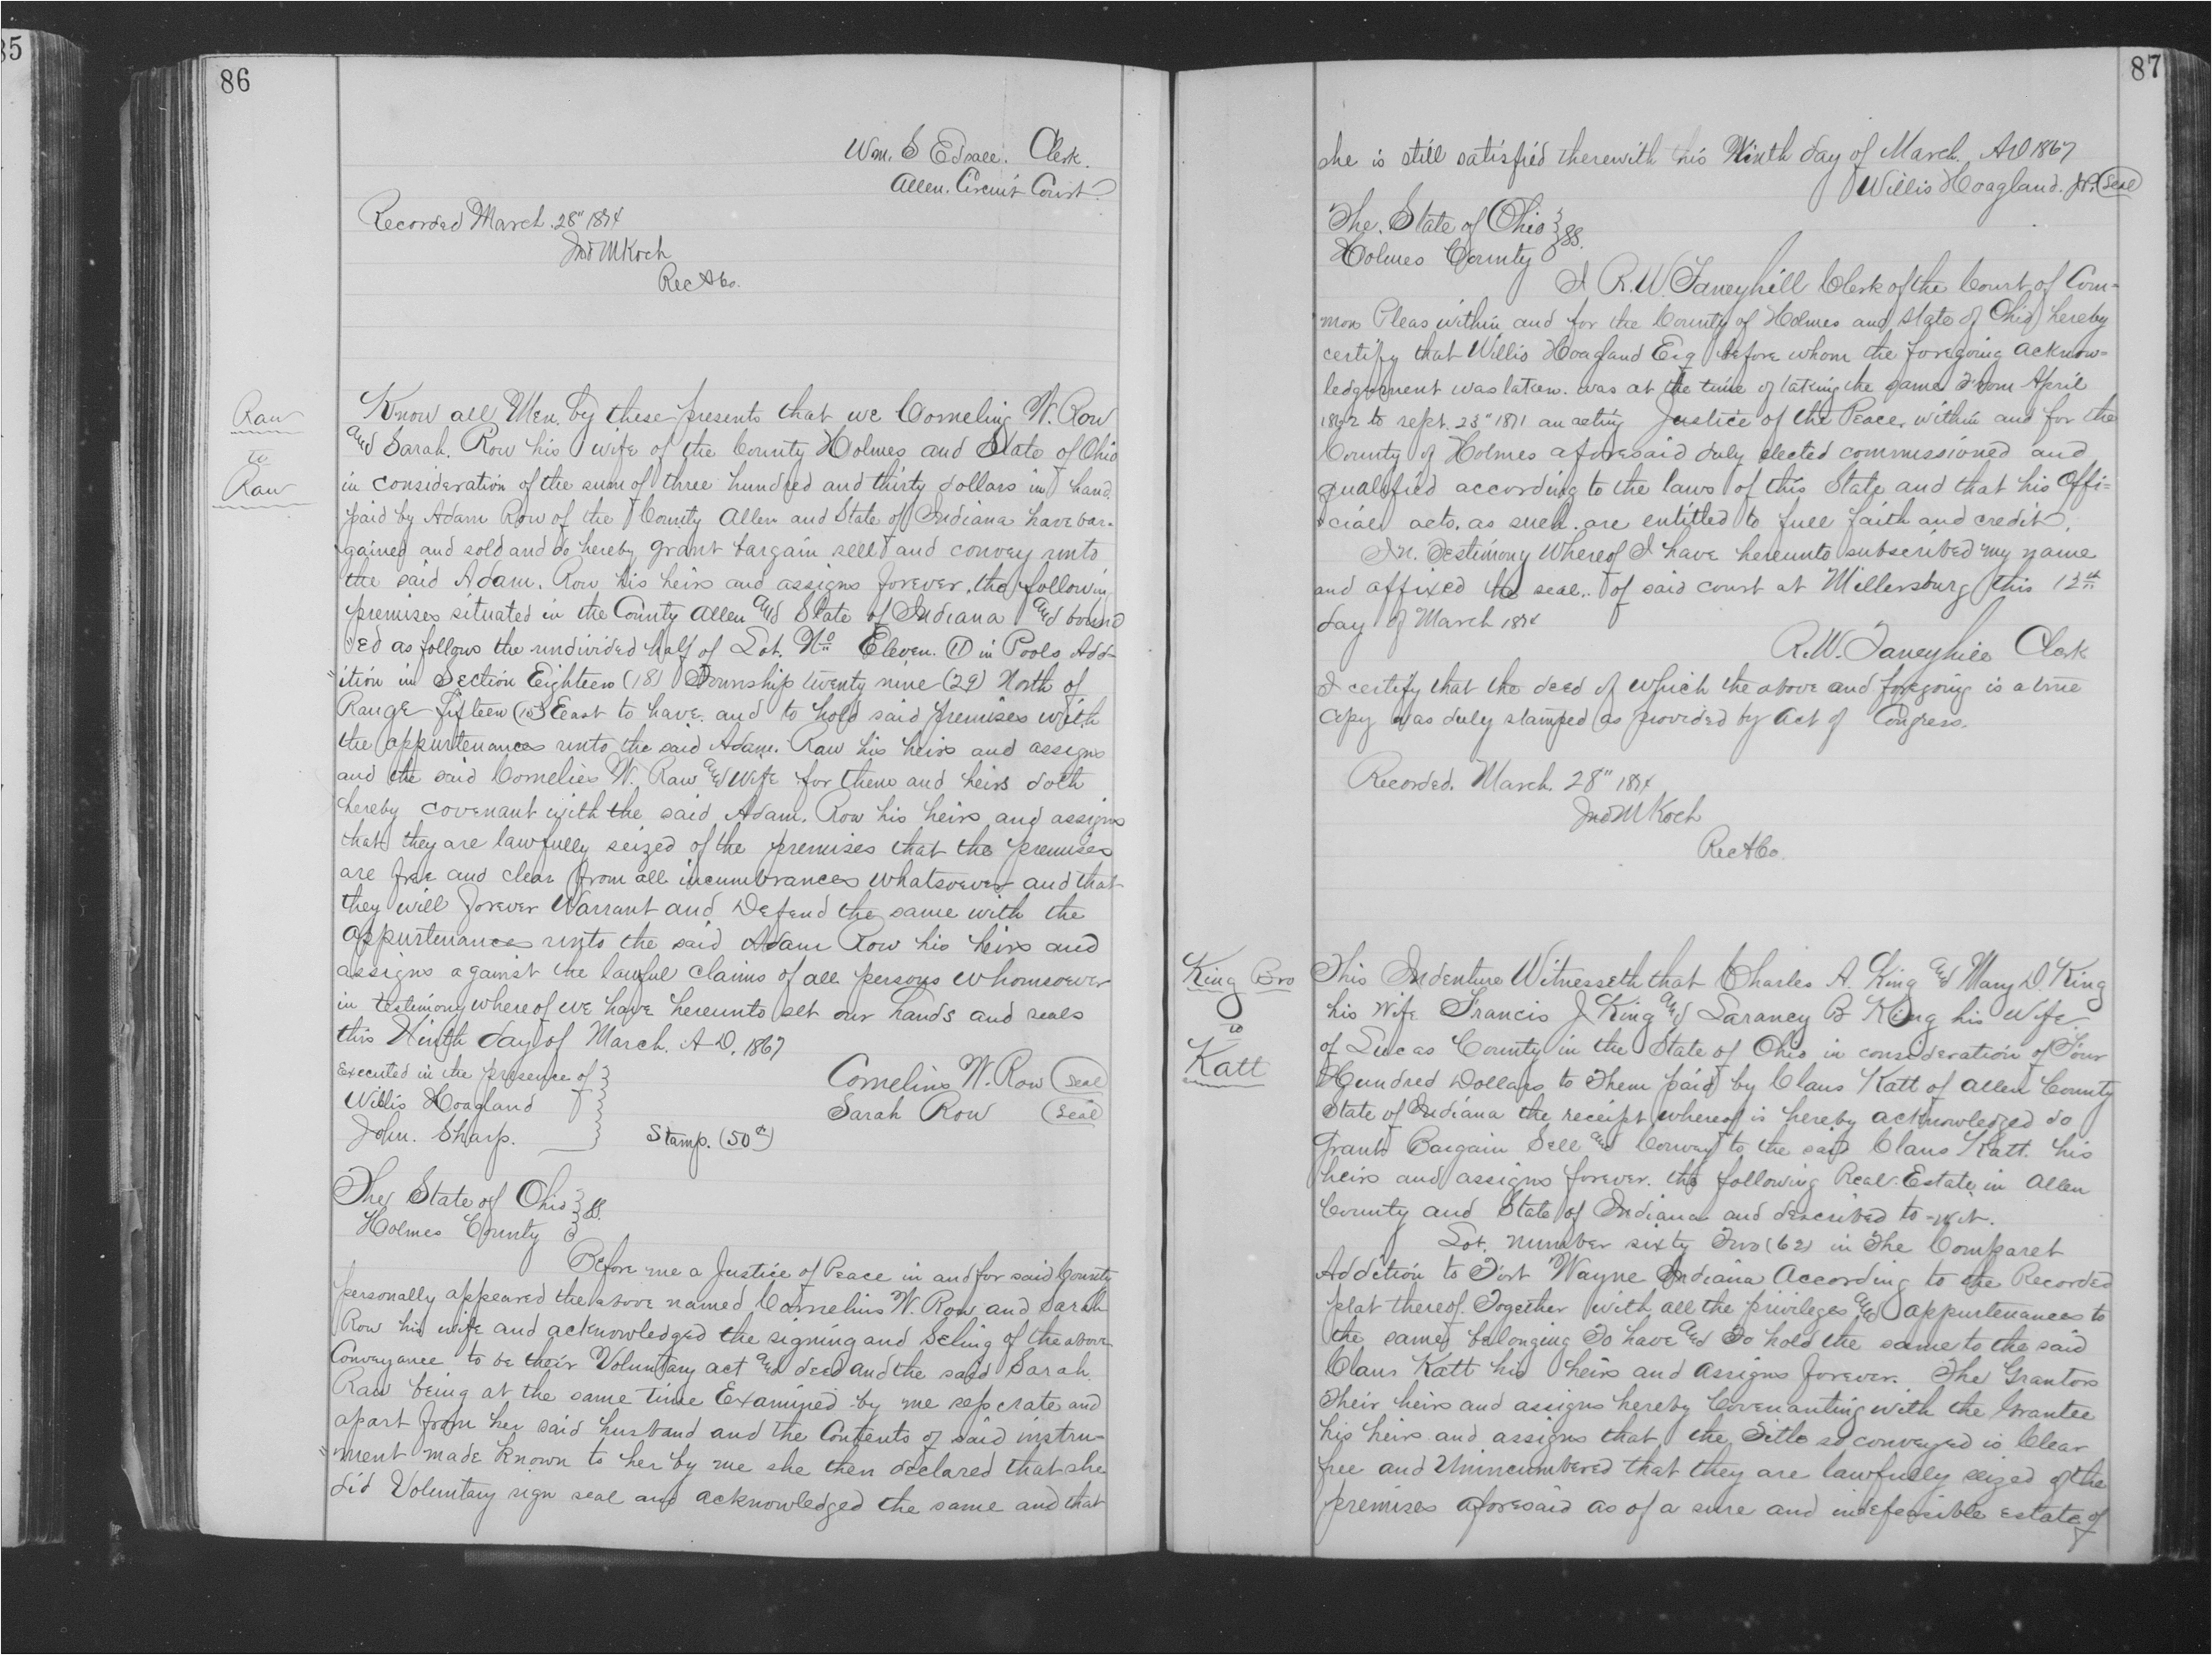 85
86
Wm. S Edsall. Clerk.
Allen. Circuit Court
Recorded March. 28" 1874
Jno M Koch
Rec A Co.
Raw
to
Raw
Know all Men. by these presents that we Cornelius W. Row
and Sarah. Row his wife of the County Holmes and State of Ohio
in consideration of the sum of three hundred and thirty dollars in hand
paid by Adam Row of the County Allen and State of Indiana have bar-
gained and sold and do hereby grant bargain sell and convey unto
the said Adam. Row his heirs and assigns forever. the following
premises situated in the County Allen and State of Indiana and bound
ed as follows the undivided half of Lot. No Eleven. (11) in Pools Add-
"ition in Section Eighteen (18) Township twenty nine (29) North of
Range fifteen (15) East to have. and to hold said premises with
the appurtenances unto the said Adam. Raw his heirs and assigns
and the said Cornelies W. Raw and Wife for them and heirs doth
hereby covenant with the said Adam. Row his heirs and assigns
that they are lawfully seized of the premises that the premises
are free and clear from all incumbrances whatsoever and that
they will forever Warrant and Defend the same with the
appurtenances unto the said Adam Row his heirs and
assigns against the lawful claims of all persons whomsoever
in testimony whereof we have hereunto set our hands and seals
this Ninth day of March. A D. 1867
Executed in the presence of }
Willis Hoagland
John. Sharp.
Cornelius W. Row (seal)
Sarah Row (seal)
Stamp. (50¢)
The State of Ohio } SS.
Holmes County
Before me a Justice of Peace in and for said County
personally appeared the above named Cornelius W. Row and Sarah
Row his wife and acknowledged the signing and Seling of the above
Conveyance to be their Voluntary act and deed and the said Sarah.
Raw being at the same time Examined by me seperate and
apart from her said husband and the Contents of said instru-
"ment made known to her by me she then declared that she
did Voluntary sign seal and acknowledged the same and that
87
she is still satisfied therewith this Ninth day of March. AD 1867
Willis Hoagland. J.P. (Seal)
The. State of Ohio } SS.
Holmes County
I R.W. Taneyhill Clerk of the Court of Com-
mon Pleas within and for the County of Holmes and State of Ohio hereby
certify that Willis Hoagland Esq before whom the foregoing acknow-
ledgement was taken. was at the time of taking the same from April
to sept. 23" 1871 an acting Justice of the Peace, within and for the
County of Holmes aforesaid duly elected commissioned and
qualified according to the laws of this State and that his Offi=
cial acts. as such. are entitled to full faith and credit.
In. Testimony Whereof I have hereunto subscribed my name
and affixed the seal.. of said court at Millersburg this 12th
day of March 1874
R.W. Taneyhill Clerk
I certify that the deed of which the above and foregoing is a true
Copy was duly stamped as provided by Act of Congress.
Recorded. March. 28" 1874
Jno M Koch
Rec A Co.
King Bro
to
Katt
This Indenture Witnesseth that Charles A. King and Mary D. King
his Wife Francis J King and Laraney B King his Wife
of Lucas County in the State of Ohio in consideration of Four
Hundred Dollars to Them paid by Claus Katt of Allen County
State of Indiana the receipt whereof is hereby acknowledged do
Grant Bargain Sell and Convey to the said Claus Katt. his
heirs and assigns forever. the following Real. Estate in Allen
County and State of Indiana and described to-wit.
Lot. number sixty Two (62) in The Comparet
Addition to Fort Wayne Indiana According to the Recorded
plat thereof. Together with all the privileges and appurtenances to
the same belonging To have and To hold the same to the said
Claus Katt his heirs and assigns forever. The Grantors
Their heirs and assigns hereby Covenanting with the Grantee
his heirs and assigns that the Title so conveyed is Clear
free and Unincumbered that they are lawfully seized of the
premises aforesaid as of a sure and indefeasible estate of